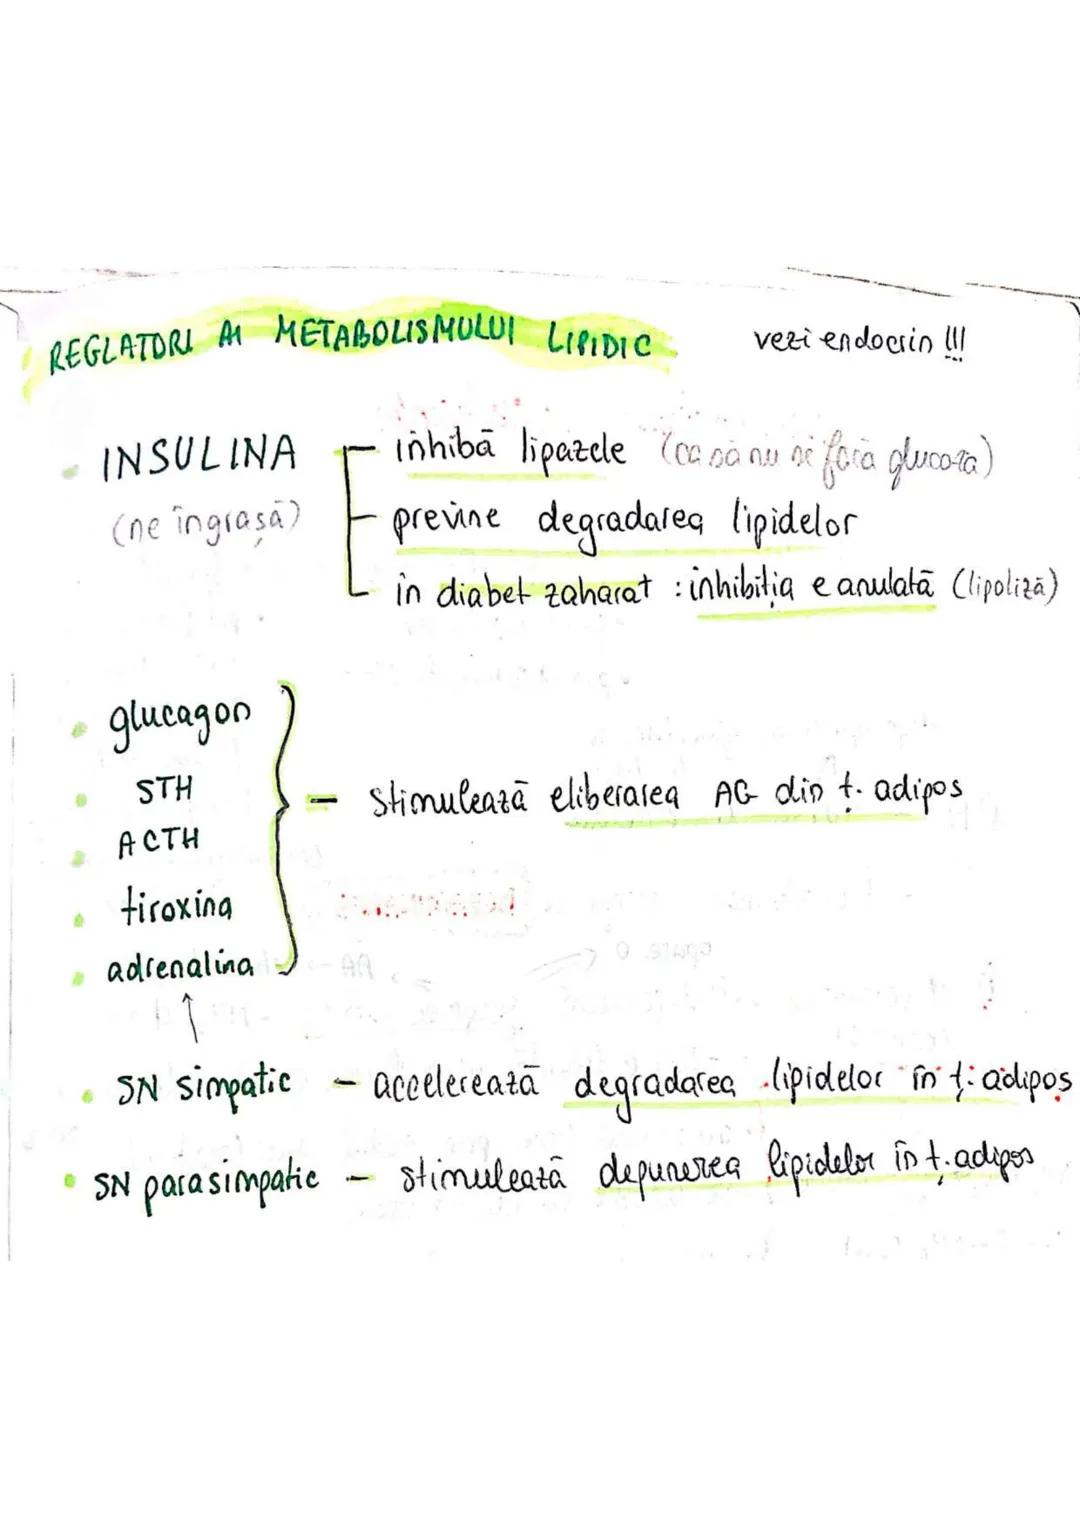 REGLATORI AI METABOLISMULUI LIPIDIC vezi endocrin !!!
INSULINA
(ne îngrașă)
inhibă lipazele (ca să nu se facă glucoza)
previne degradarea lipidelor
în diabet zaharat : inhibiția e anulată (lipoliză)
glucagon
STH
ACTH
tiroxina
adrenalina
- stimulează eliberarea AG din ț. adipos
SN simpatic - accelerează degradarea lipidelor în ț. adipos
SN parasimpatic - stimulează depunerea lipidelor în ț. adipos